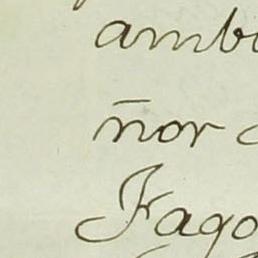 ambi
ñor c
Fago